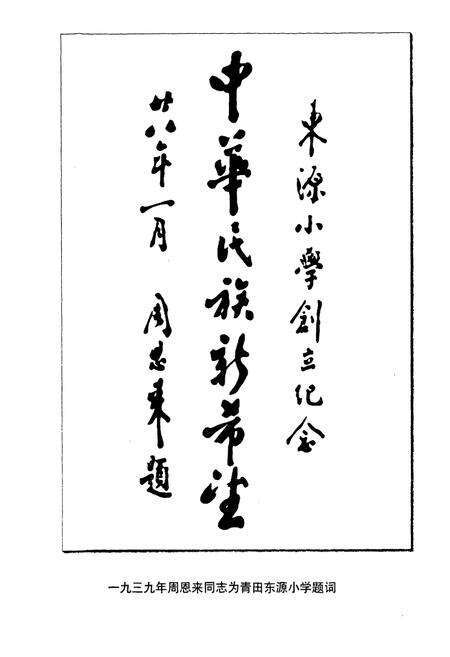 東源小學創立纪念
中華民族新希望
廿八年一月 周恩来題
一九三九年周恩来同志为青田东源小学题词